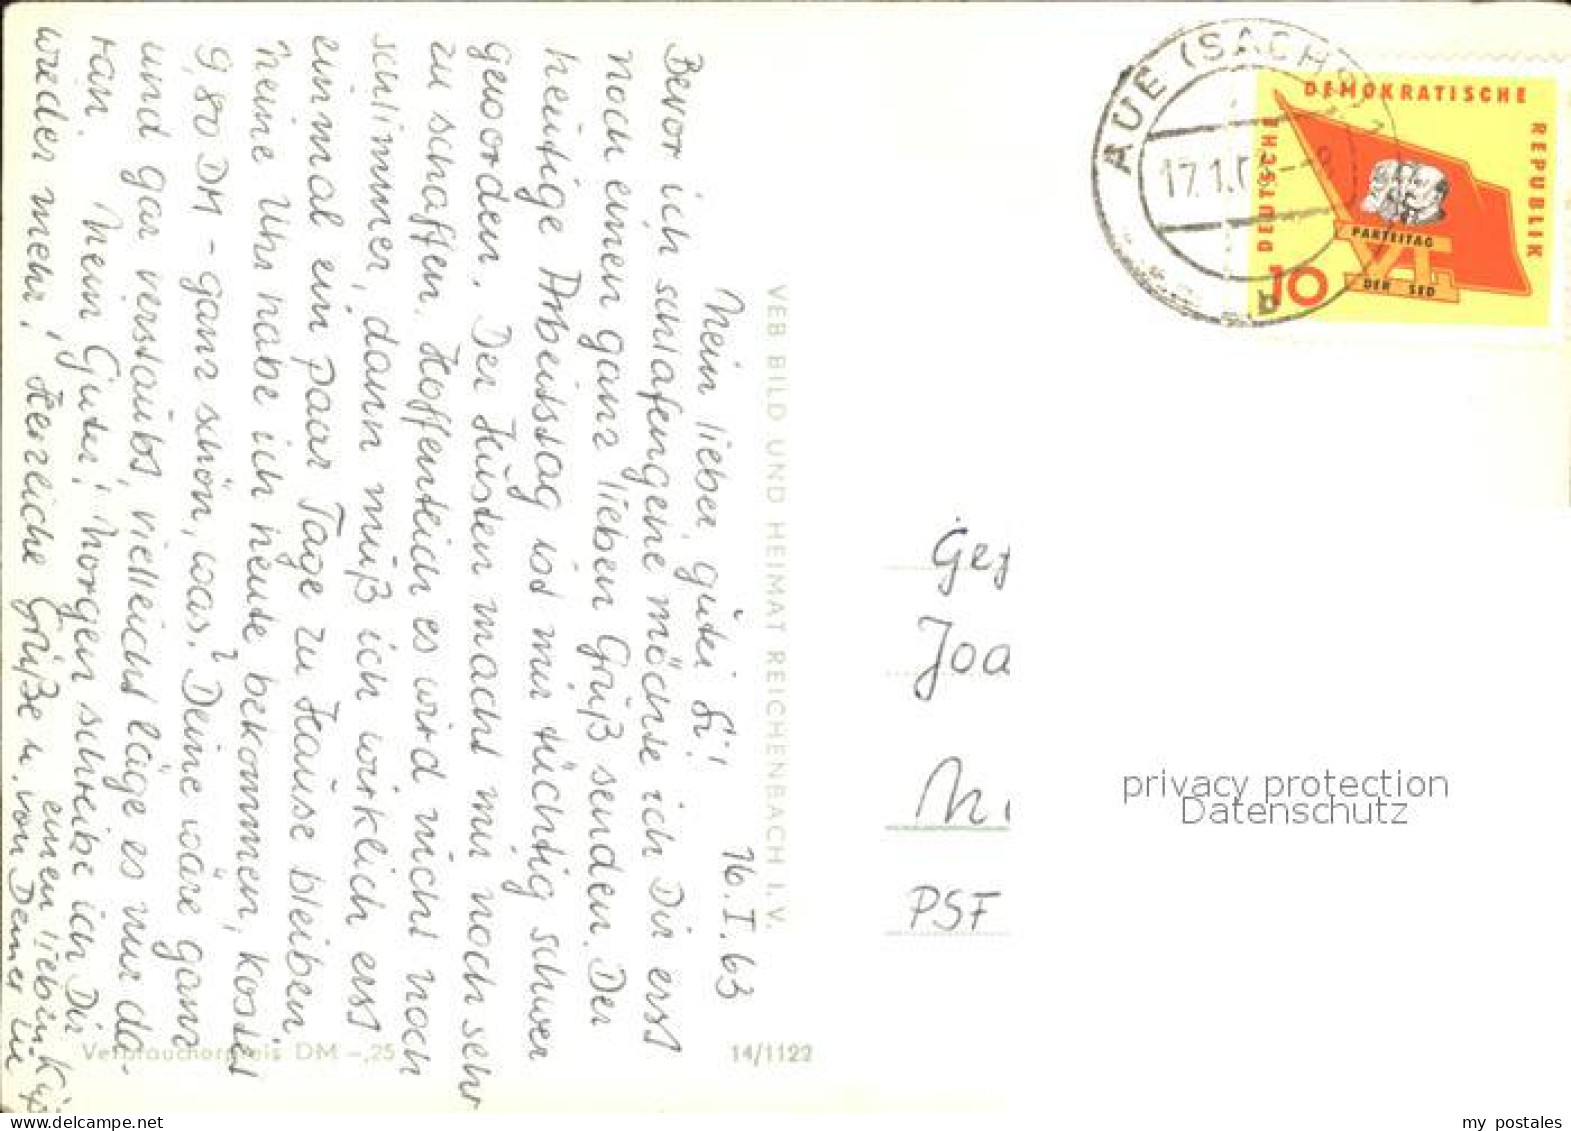 16.I.63
Mein lieber, guter Fi!
Bevor ich schlafengehe möchte ich Dir erst
noch einen ganz lieben Gruß senden. Der
heutige Arbeitstag ist mir tüchtig schwer
geworden. Der Husten macht mir noch sehr
zu schaffen. Hoffentlich es wird nicht noch
schlimmer, dann muß ich wirklich erst
einmal ein paar Tage zu Hause bleiben.
Meine Uhr habe ich heute bekommen, kostet
9,80 DM - ganz schön, was? Deine wäre ganz
und gar verstaubt, vielleicht läge es nur da-
ran. Mein Guter, morgen schreibe ich Dir
wieder mehr! Herzliche Grüße u.
einen lieben Kuß
von Deiner
VEB BILD UND HEIMAT REICHENBACH I. V.
Verbraucherpreis DM -,25
14/1122
AUE (SACHS)
17.1.
b
DEUTSCHE
DEMOKRATISCHE
REPUBLIK
PARTEITAG
VI
DER SED
10
Joa
PSF
privacy protection
Datenschutz
www.delcampe.net
my_postales